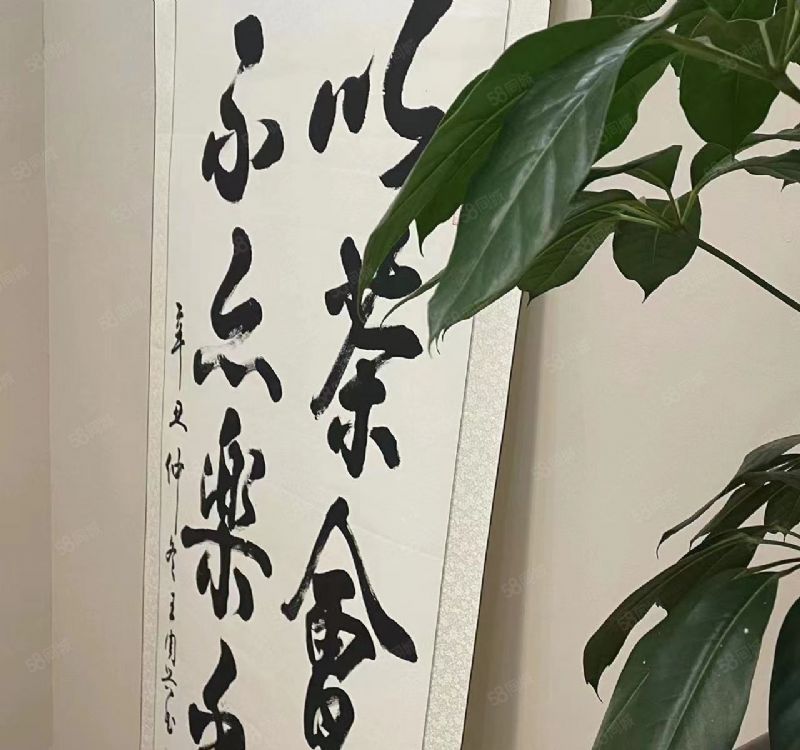 以茶會
不亦樂乎
辛丑仲冬王
58同城